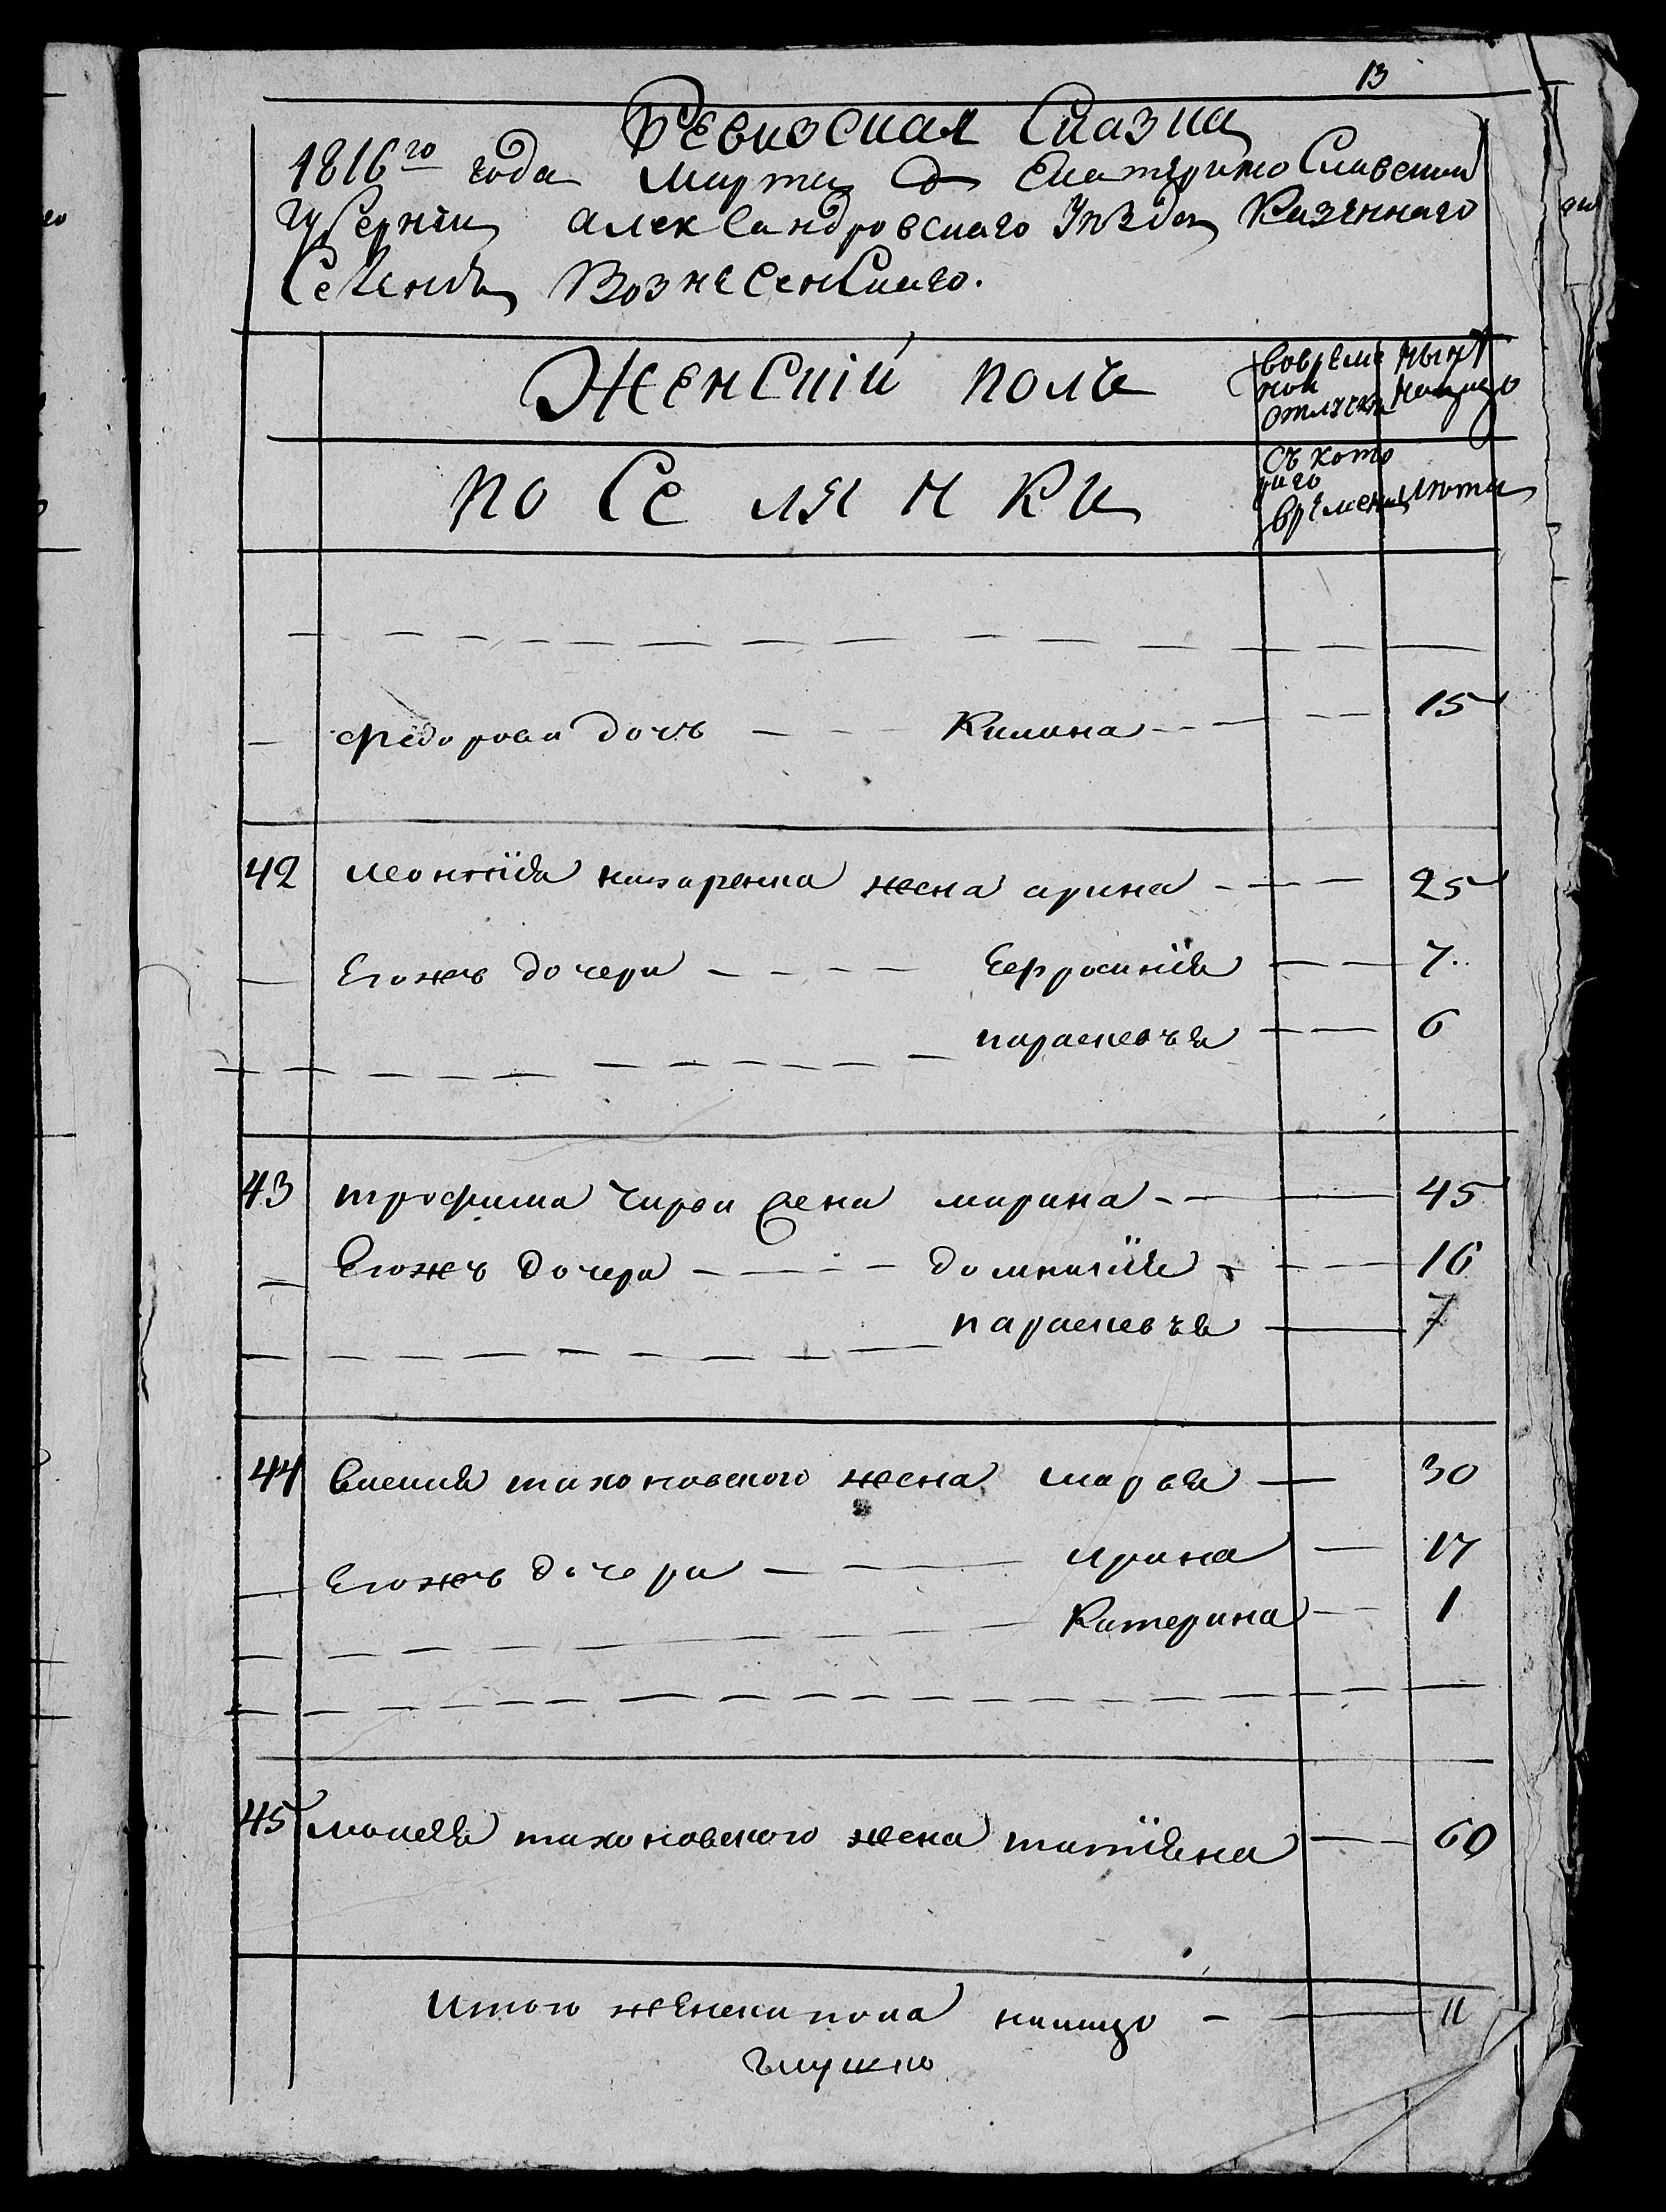 13
Ревизская Сказка
1816го года Марта дня Екатерино Славской
Губерніи Александровскаго Уѣзда Казеннаго
Селенія Вознесенскаго.
Женскій полъ
вовреме
ной
отлучки
нынѣ
налицо
поселянки
съ кото
раго
времени
лѣта
Федорова дочь Килина 15
42 леонтія назаренка жена арина 25
Егожъ дочери Ефросинія 7
параскевъя 6
43 трофима Чирва жена марина 45
Егожъ дочери домникія 16
параскевъя 7
44 василя тихоновского жена марья 30
Егожъ дочери Ирина 17
Катерина 1
45 мойсѣя тихоновского жена татіяна 60
Итого женска пола налицо 11